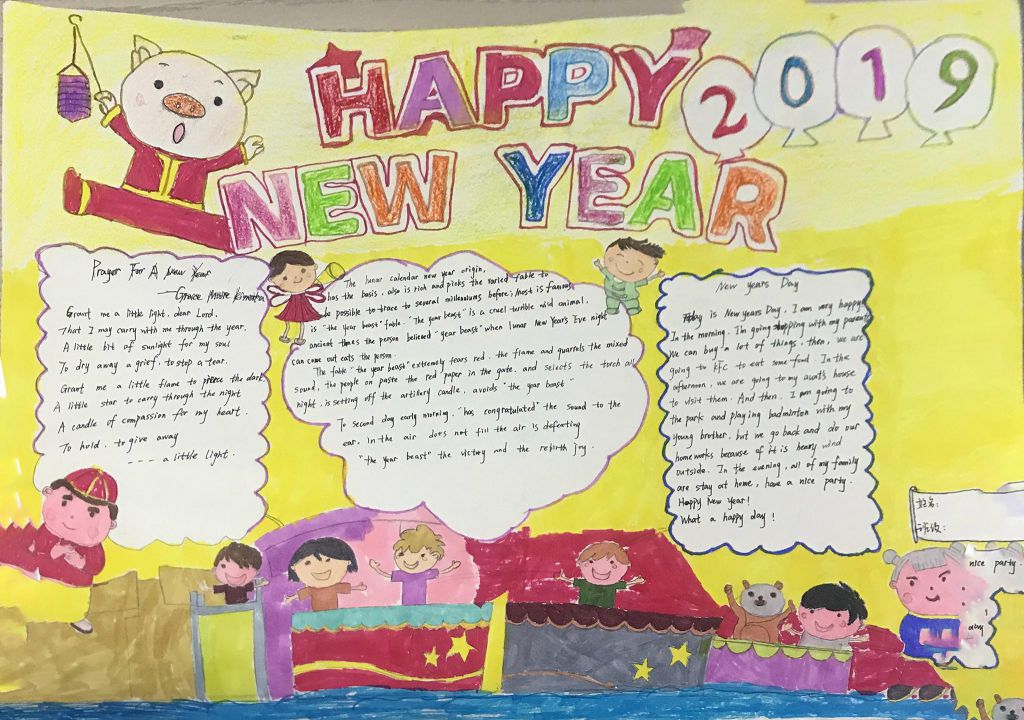 HAPPY 2019
NEW YEAR
Prayer For A New Year
Grace
Grant me a little light, dear Lord,
That I may carry with me through the year.
A little bit of sunlight for my soul
To dry away a grief, to stop a tear.
Grant me a little flame to pierce the dark
A little star to carry through the night
A candle of compassion for my heart.
To hold. to give away
---- a little light.
The lunar calendar new year origin,
has the basis, also is rich and pinks the varied fable to
be possible to trace to several millenniums before; Most is famous
is "the year beast" fable. "The year beast" is a cruel terrible wild animal,
ancient times the person believed "year beast" when lunar New Year's Eve night
can come out eats the person.
The fable "the year beast" extremely fears red, the flame and quarrels the mixed
sound, the people on paste the red paper in the gate, and selects the torch all
night, is setting off the artillery candle, avoids "the year beast"
To second day early morning, "has congratulated" the sound to the
ear. in the air does not fill the air is defeating
"the year beast" the victory and the rebirth joy.
New years Day
Today is New years Day, I am very happy
In the morning. I'm going shopping with my parents
We can buy a lot of things, then, we are
going to KFC to eat some foul. In the
afernoon, we are going to my aunt's house
to visit them. And then. I am going to
the park and playing badminton with my
young brother, but we go back and do our
homeworks because of it is heavy wind
outside. In the evening, all of my family
are stay at home, have a nice party.
Happy New Year!
What a happy day!
姓名:
班级:
nice party.